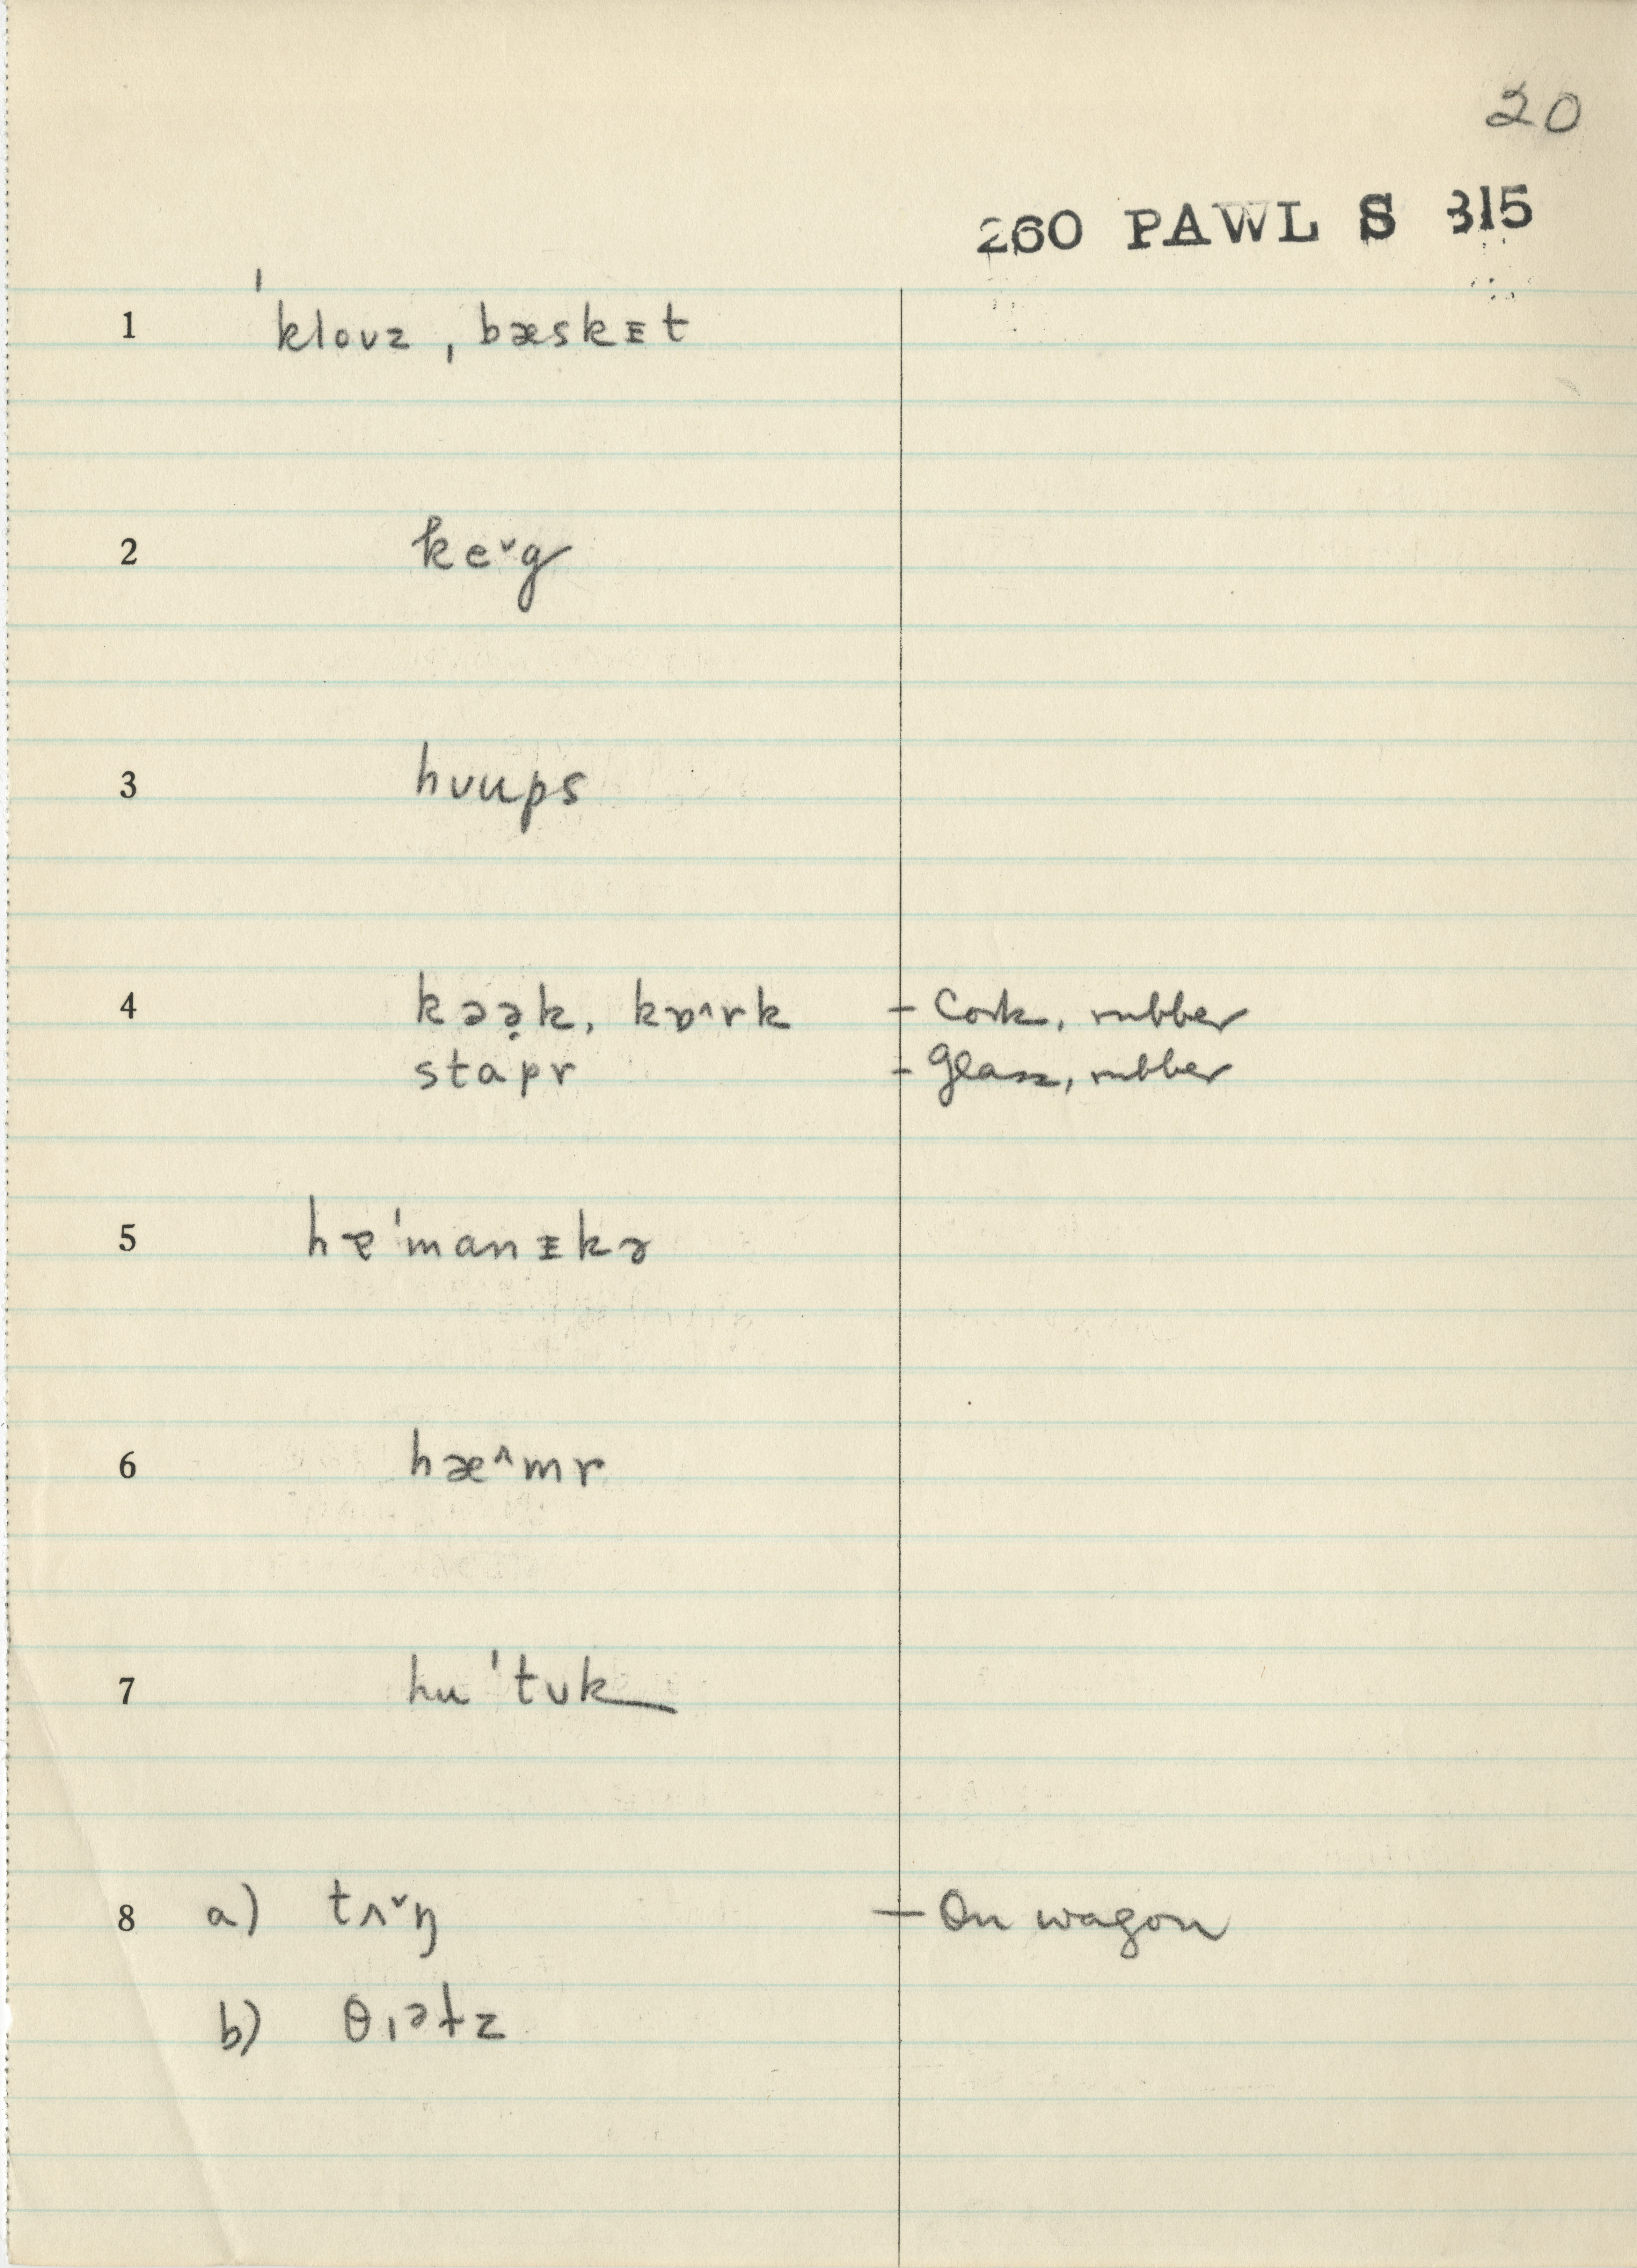 20
260 PAWL S 315
1 ˈklouz, bæskᵻt
2 ke˅g
3 hʊups
4 kəə̣k, kɒ^rk – Cork, rubber
stapr – Glass, rubber
5 hɐˈmanᵻkə
6 hæ^mr
7 huˈtʊk
8 a) tʌ˅ŋ – On wagon
b) θɪəɫz